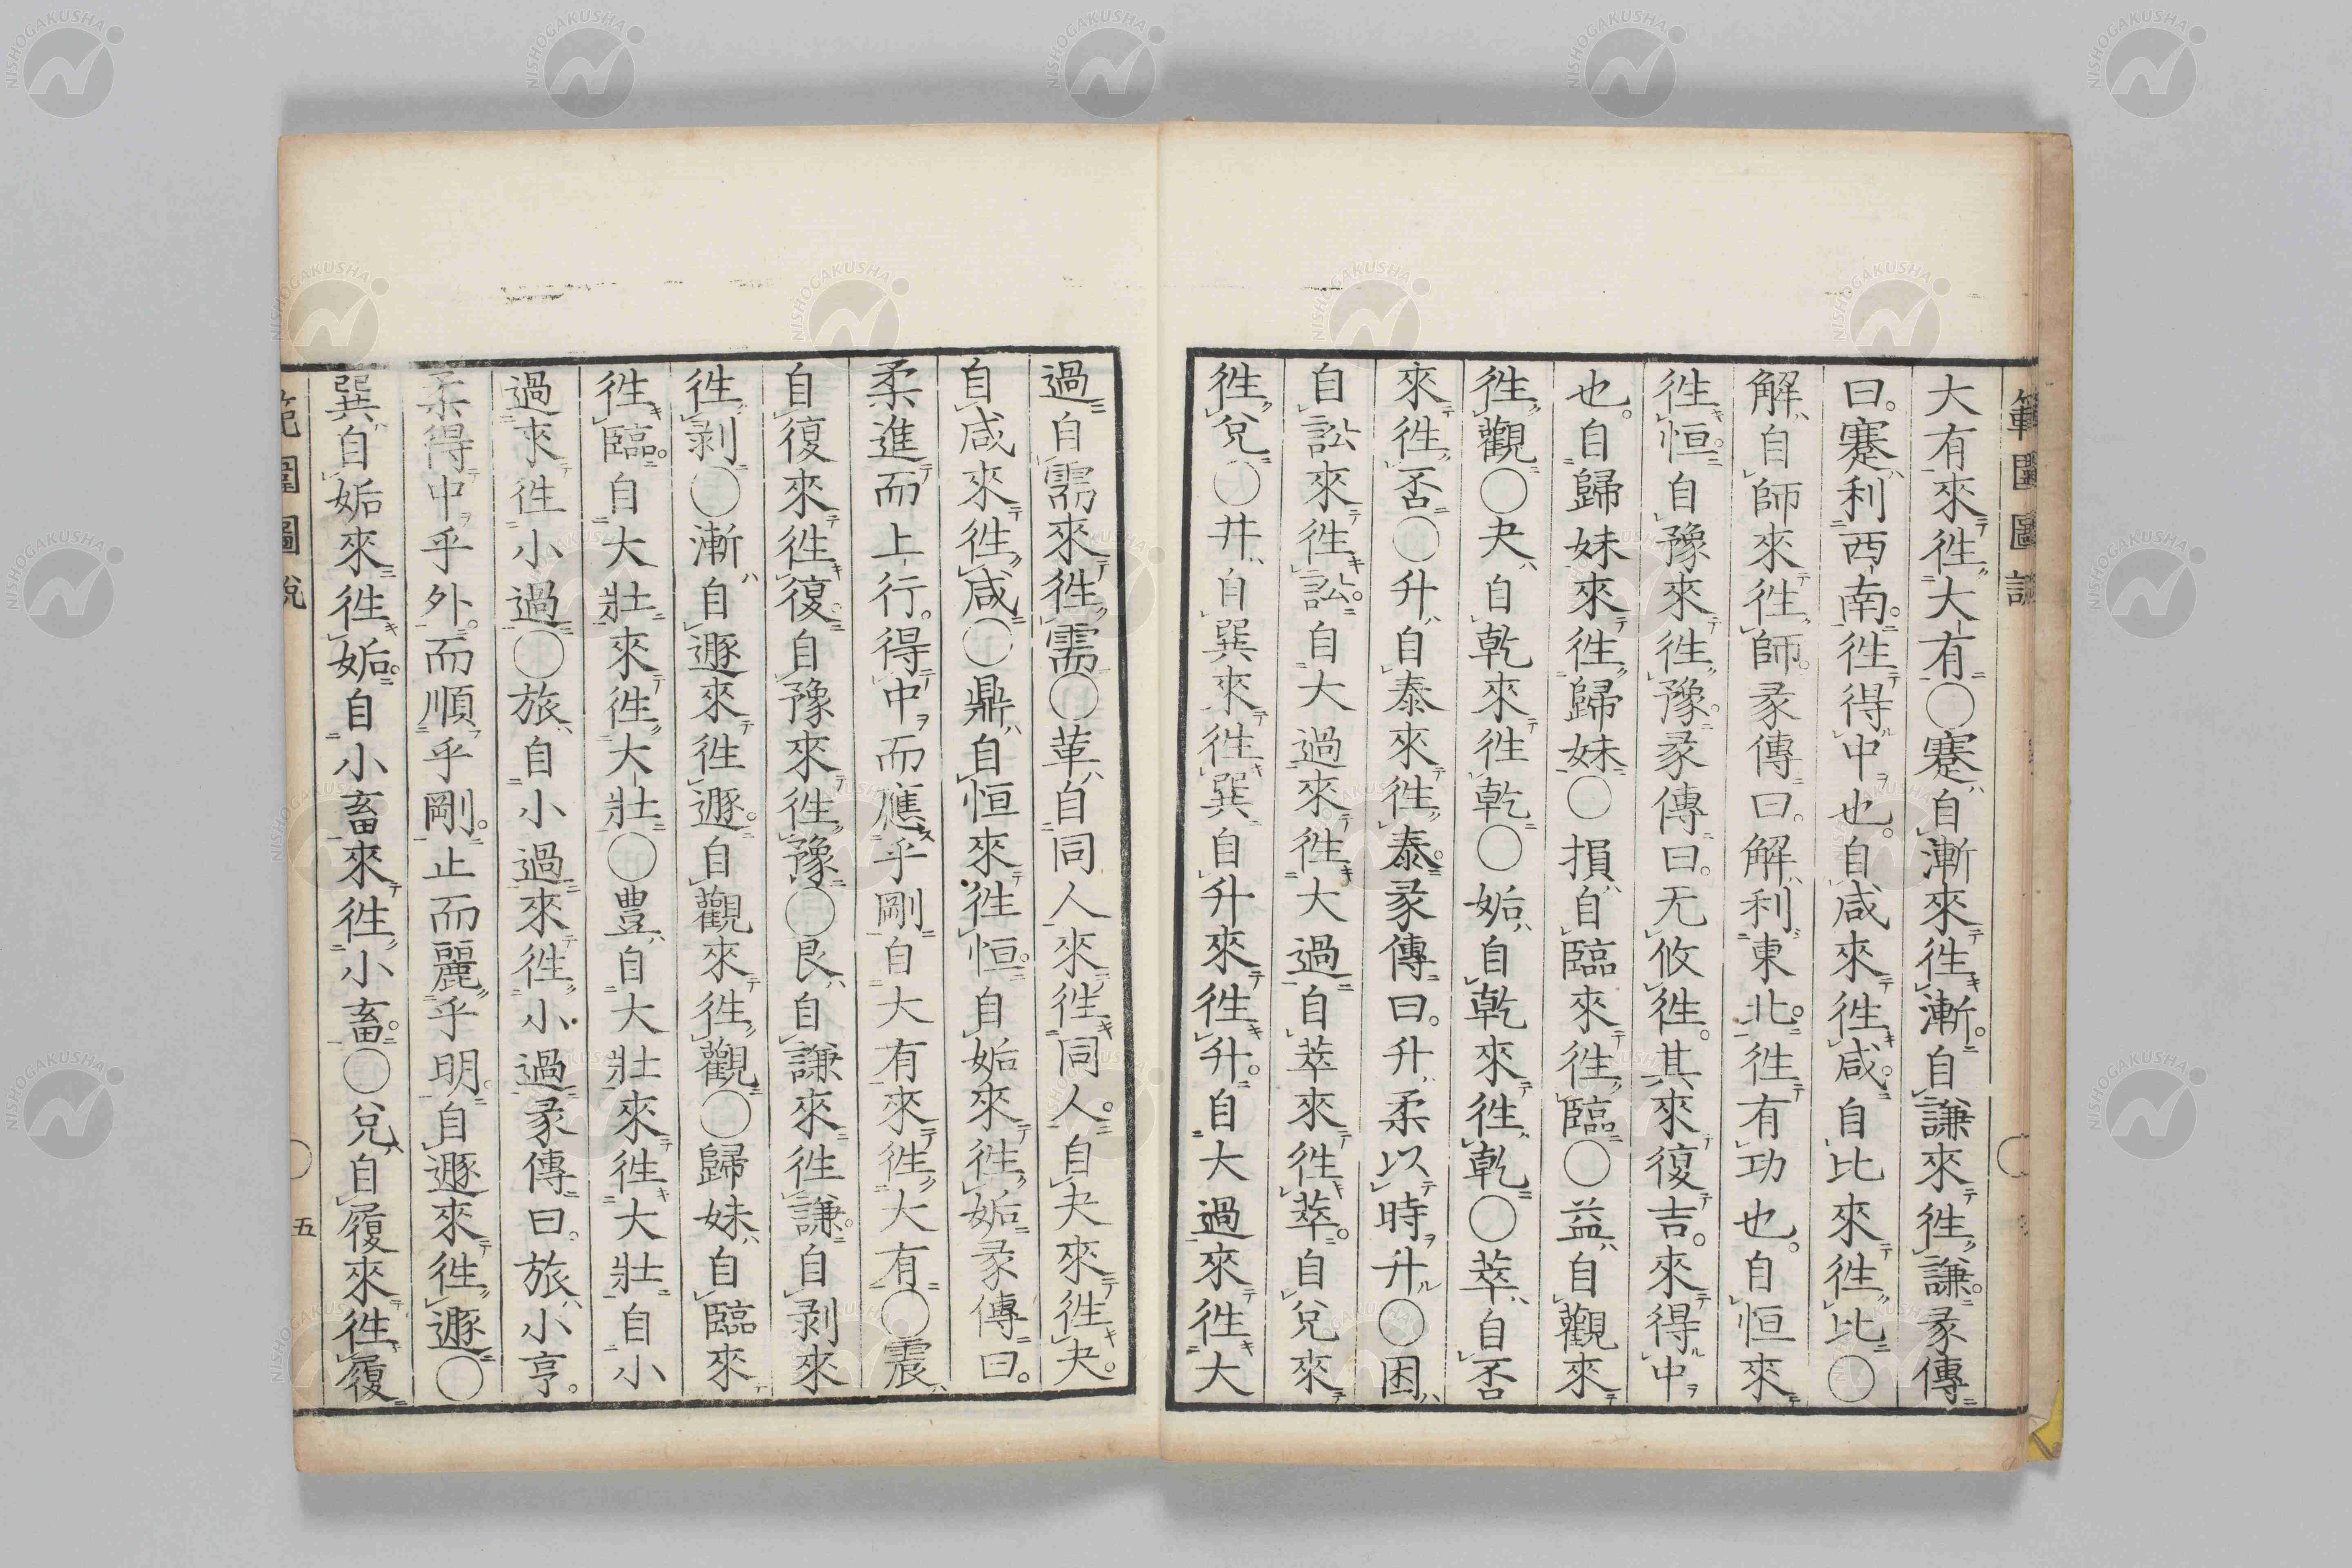 範圍圖説
大有來徃大有○蹇自漸來徃漸自謙來徃謙彖傳
曰蹇利西南徃得中也自咸來徃咸自比來徃比○
解自師來徃師彖傳曰解利東北徃有功也自恒來
徃恒自豫來徃豫彖傳曰无攸徃其來復吉來得中
也自歸妹來徃歸妹○損自臨來徃臨○益自觀來
徃觀○夬自乾來徃乾○姤自乾來徃乾○萃自否
來徃否○升自泰來徃泰彖傳曰升柔以時升○困
自訟來徃訟自大過來徃大過自萃來徃萃自兌來
徃兌○井自巽來徃巽自升來徃升自大過來徃大
過自需來徃需○革自同人來徃同人自夬來徃夬
自咸來徃咸○鼎自恒來徃恒自姤來徃姤彖傳曰
柔進而上行得中而應乎剛自大有來徃大有○震
自復來徃復自豫來徃豫○艮自謙來徃謙自剥來
徃剥○漸自遯來徃遯自觀來徃觀○歸妹自臨來
徃臨自大壯來徃大壯○豊自大壯來徃大壯自小
過來徃小過○旅自小過來徃小過彖傳曰旅小亨
柔得中乎外而順乎剛止而麗乎明自遯來徃遯○
巽自姤來徃姤自小畜來徃小畜○兌自履來徃履
範圍圖説
五
NISHOGAKUSHA